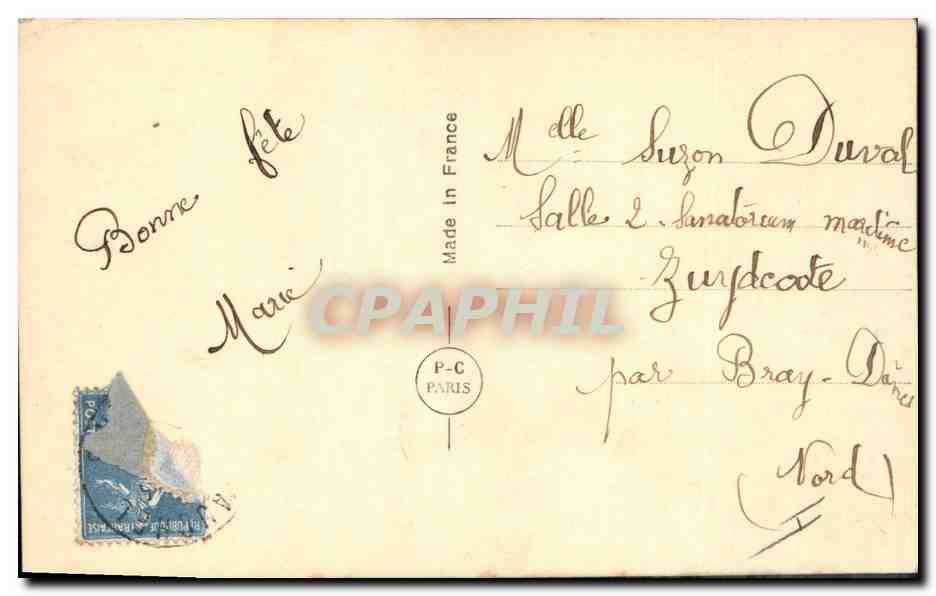 Bonne fête
Marie
Made in France
P-C
PARIS
Melle Suzon Duval
Salle 2. Sanatorium maritime
Zuydcoote
par Bray-Dunes
(Nord)
CPAPHIL
REPUBLIQUE FRANÇAISE